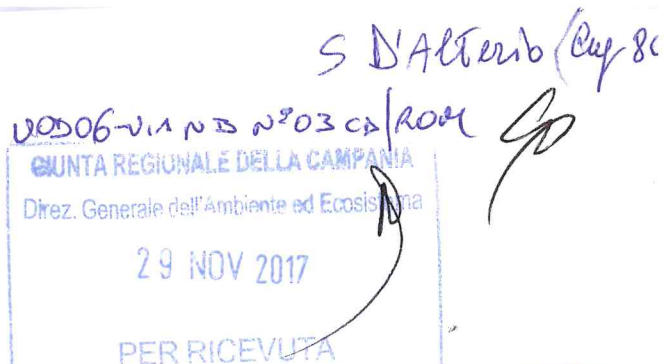 S D'Alterio
UOD06-VIA NB N°03 CD/ROM
GIUNTA REGIONALE DELLA CAMPANIA
Direz. Generale dell'Ambiente ed Ecosistema
29 NOV 2017
PER RICEVUTA